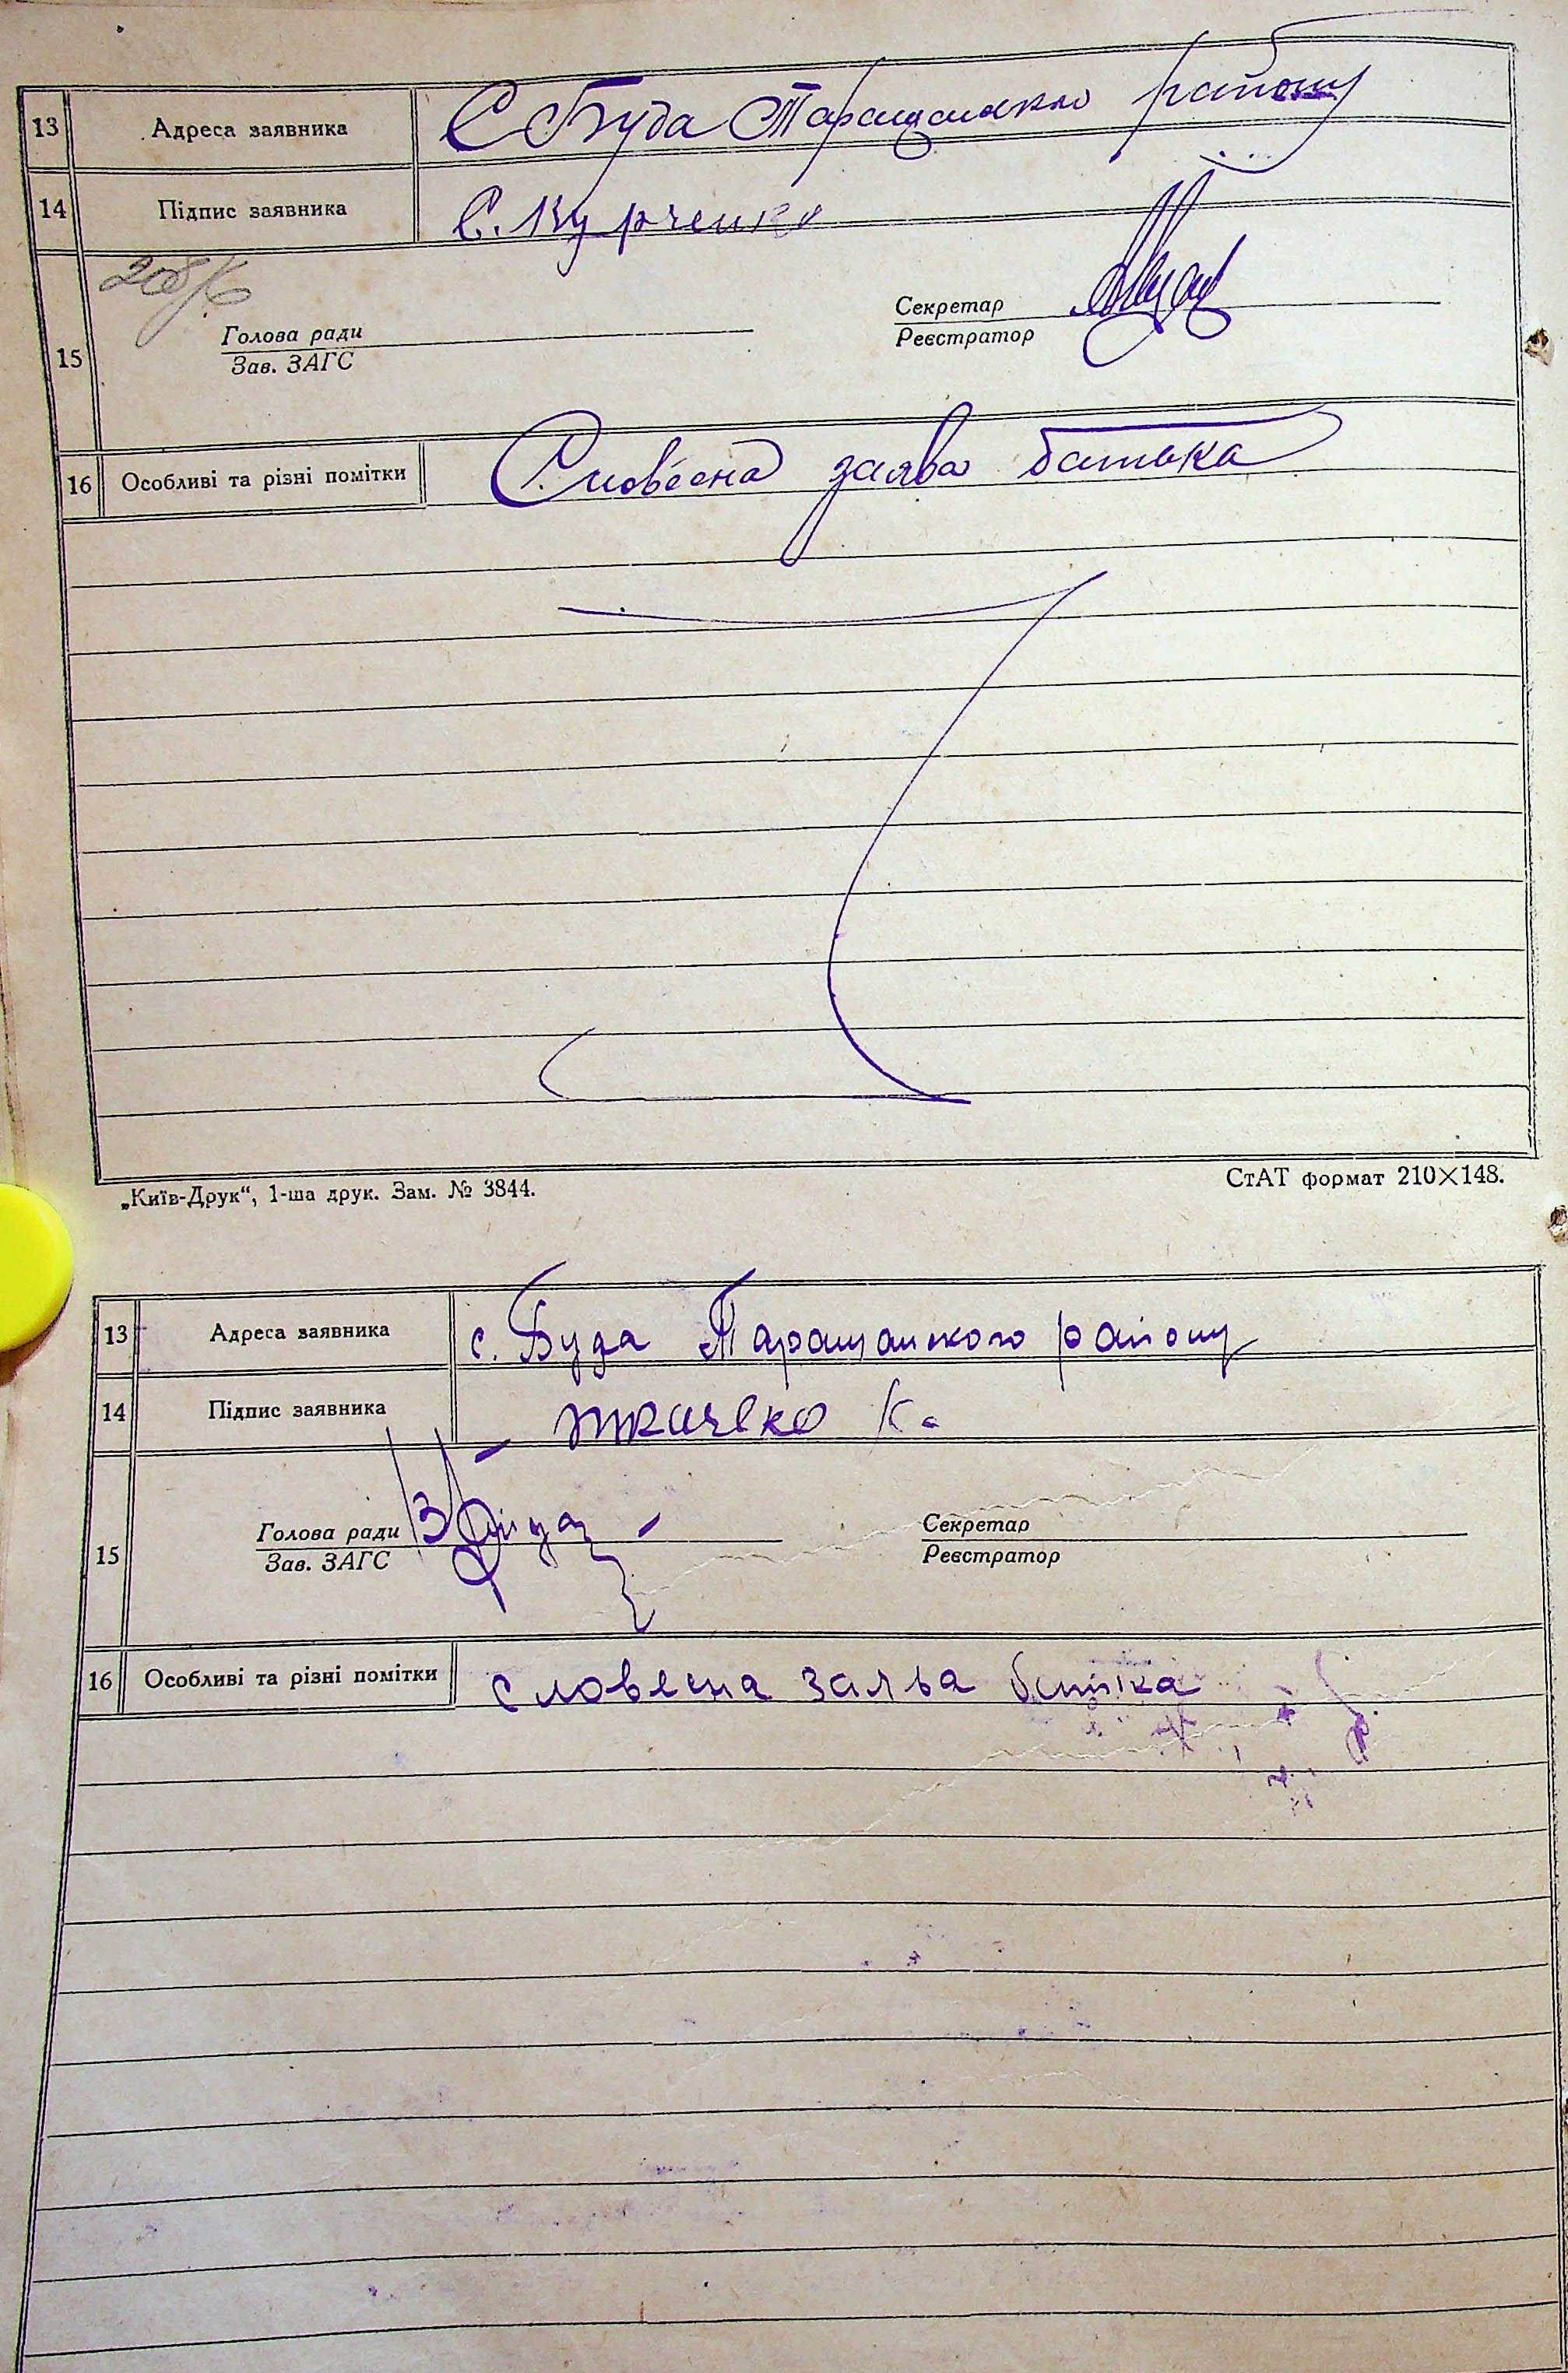 13 Адреса заявника С Буда Таращанского району
14 Підпис заявника С. Курченко
15 Голова ради Секретар
Зав. ЗАГС Реєстратор
16 Особливі та різні помітки Словесна заява батька
„Київ-Друк“, 1-ша друк. Зам. № 3844. СтАТ формат 210×148.
13 Адреса заявника с. Буда Таращанского району
14 Підпис заявника К.
15 Голова ради Секретар
Зав. ЗАГС Реєстратор
16 Особливі та різні помітки словесна заява батька